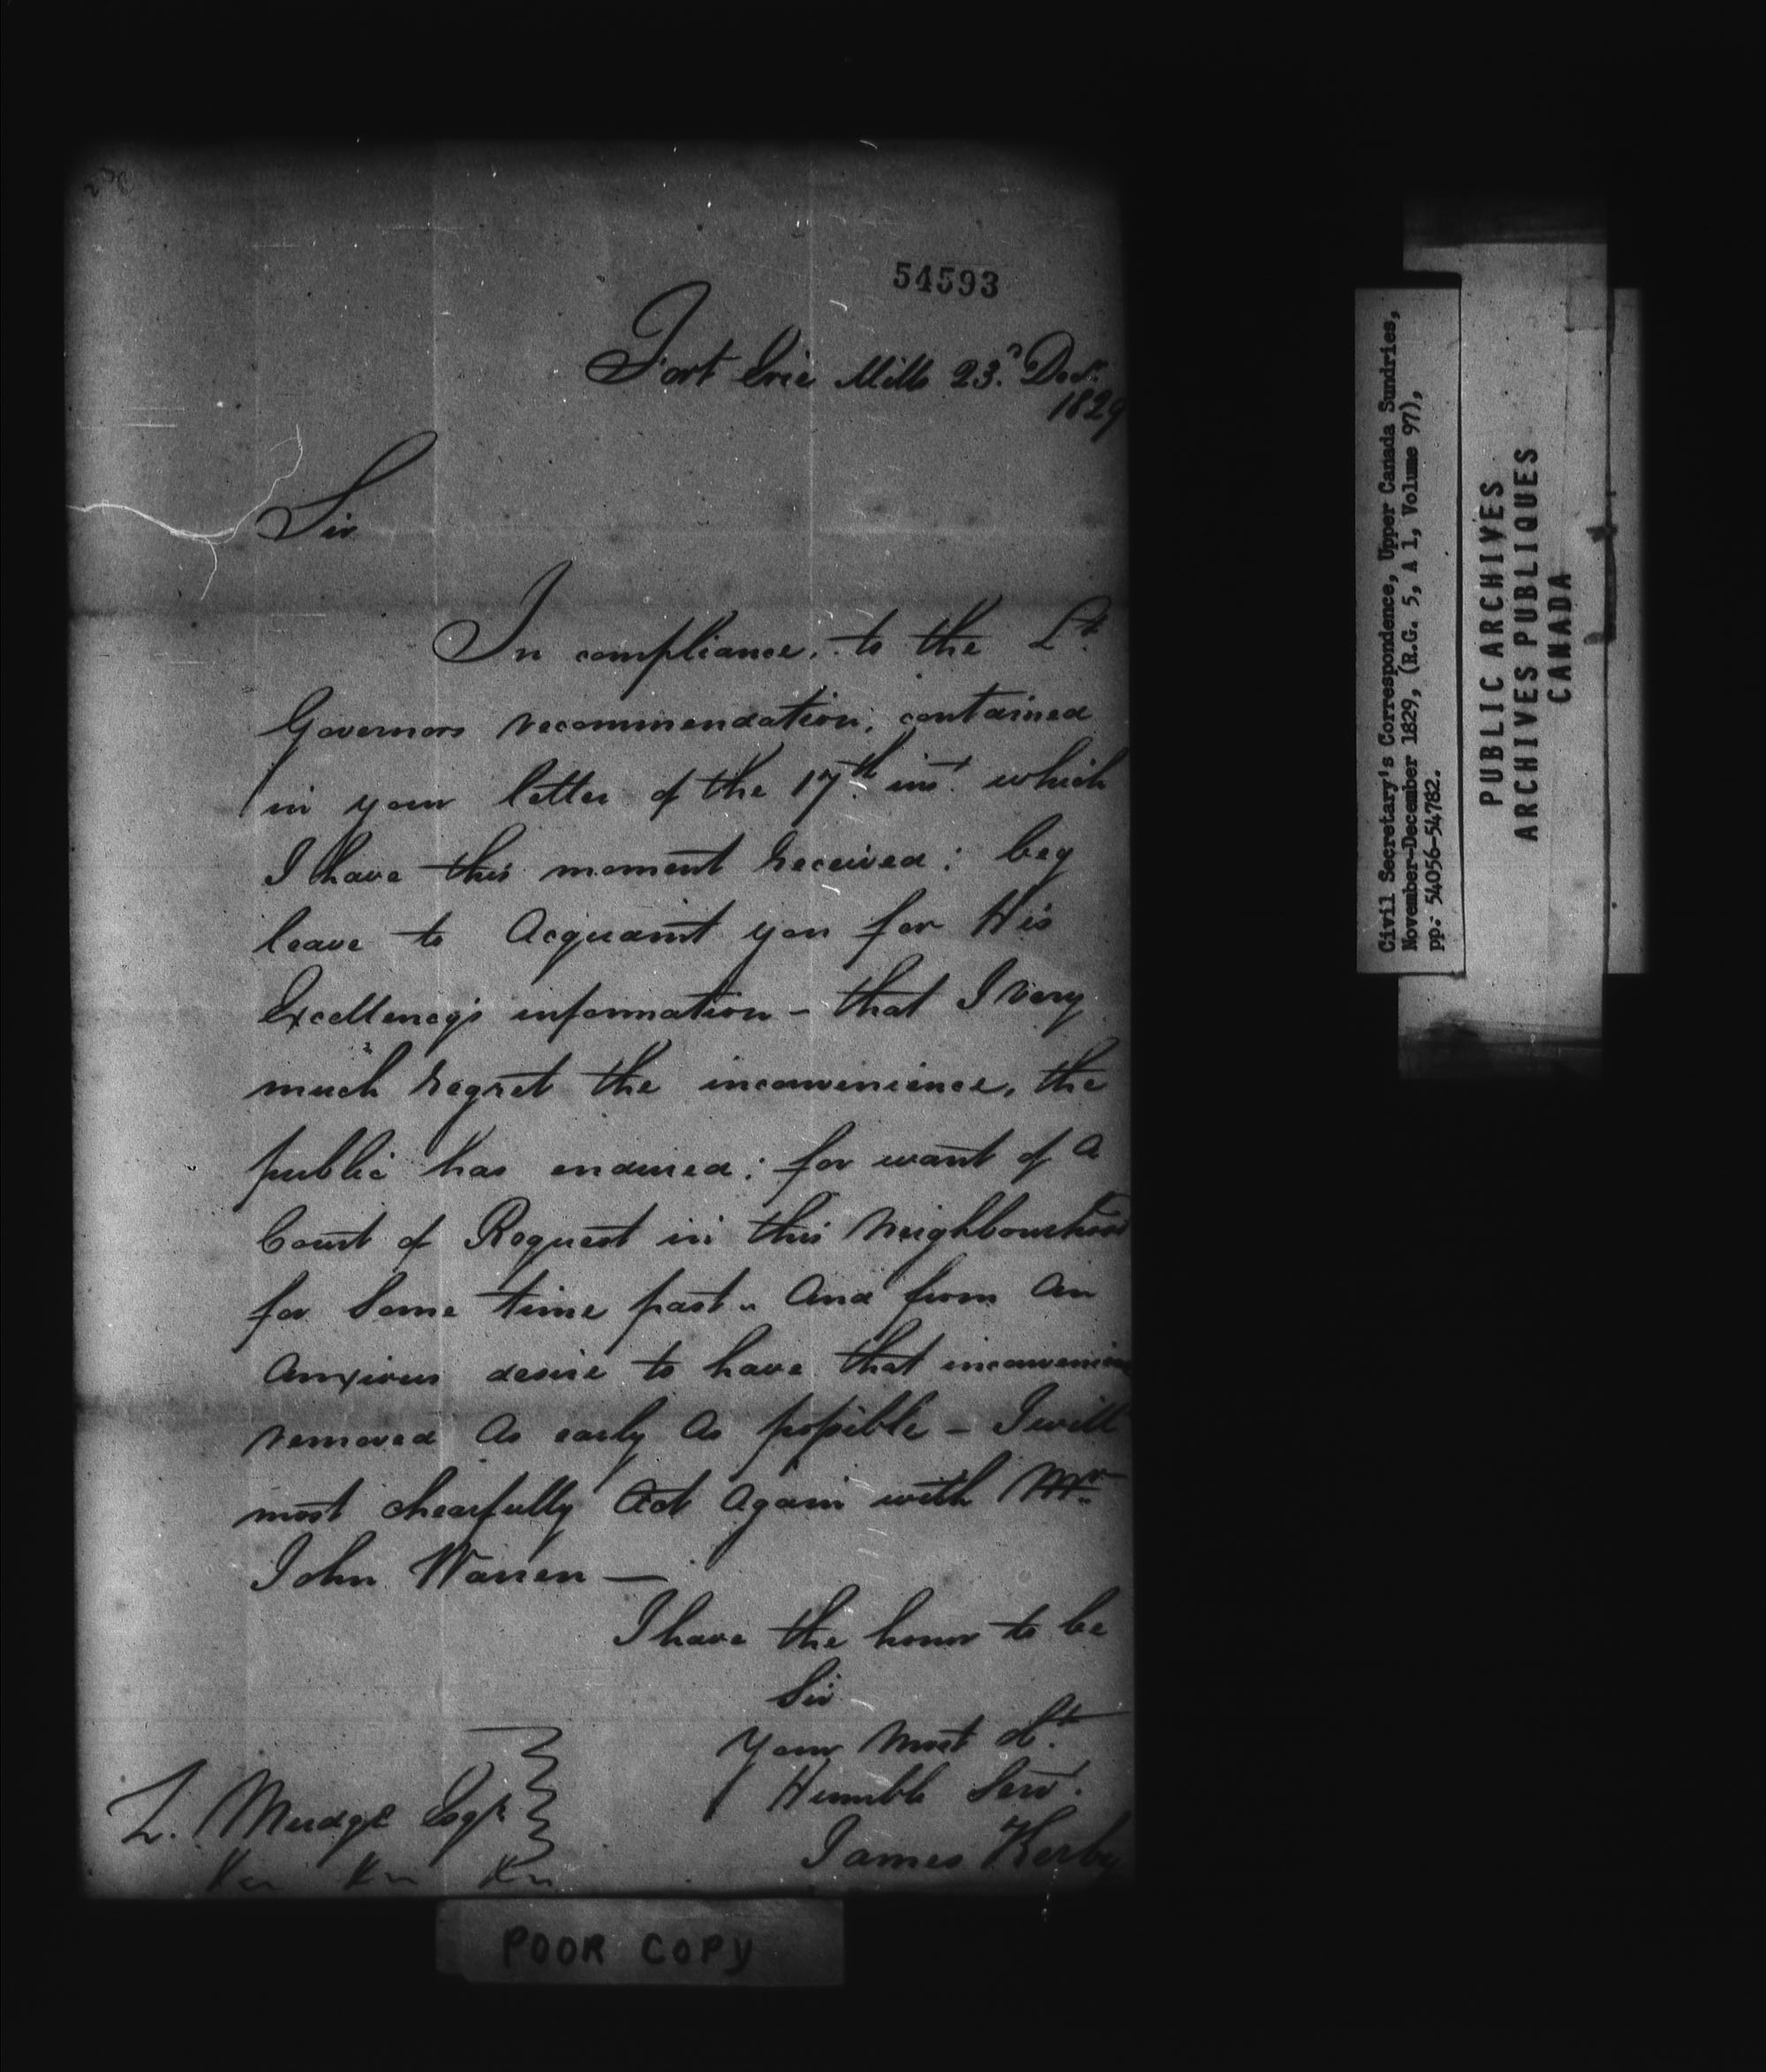 54593
Fort Erie Mills 23.d Decr.
1829
Sir
In compliance, to the Lt.
Governors recommendation; contained
in your letter of the 17th. inst. which
I have this moment received: beg
leave to Acquaint you for His
Excellency's information - that I very
much regret the inconvenience, the
public has endured: for want of a
Court of Request in this Neighbourhood
for Some time past. And from an
Anxious desire to have that inconvenience
removed As early As possible - I will
most chearfully Act Again with Mr.
John Warren —
I have the honor to be
Sir
Your Most Obt.
Humble Servt.
James Kerby
Z. Mudge Esqr.
&c &c &c
POOR COPY
Civil Secretary's Correspondence, Upper Canada Sundries,
November-December 1829, (R.G. 5, A 1, Volume 97),
pp. 54056-54782.
PUBLIC ARCHIVES
ARCHIVES PUBLIQUES
CANADA